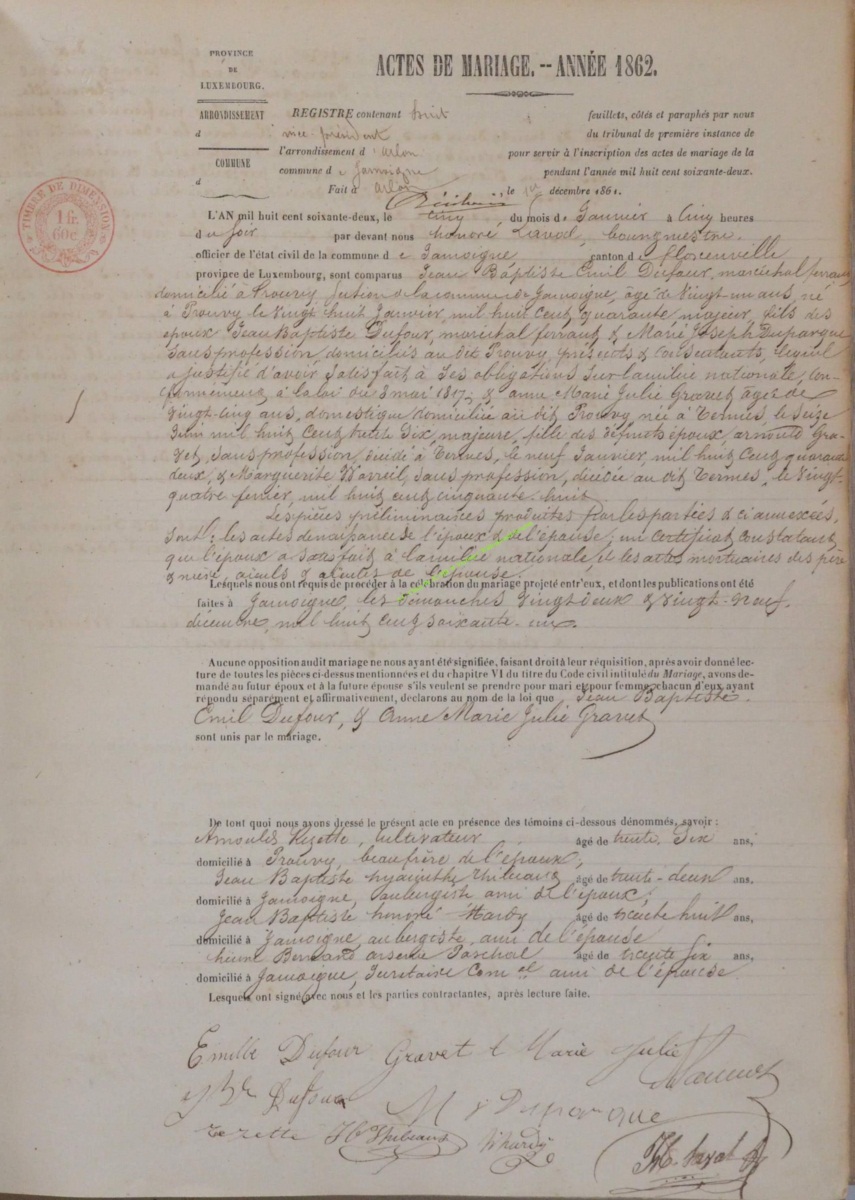 PROVINCE
DE
LUXEMBOURG.
ARRONDISSEMENT
d
COMMUNE
d
TIMBRE DE DIMENSION
ACTES DE MARIAGE. -- ANNÉE 1862.
REGISTRE contenant huit feuillets, côtés et paraphés par nous
vice-président du tribunal de première instance de
l'arrondissement d'arlon pour servir à l'inscription des actes de mariage de la
commune de Jamoigne pendant l'année mil huit cent soixante-deux.
Fait à arlon le décembre 1861.
L'AN mil huit cent soixante-deux, le cinq du mois de Janvier à Cinq heures
du soir par devant nous honoré Laval, bourgmestre
officier de l'état civil de la commune de Jamoigne canton de florenville
province de Luxembourg, sont comparus Jean Baptiste Emil Dufour, maréchal ferrant
domicilié à Prouvy Section de la commune de Jamoigne, âgé de Vingt-un ans, né
à Prouvy le vingt huit Janvier, mil huit cent quarante majeur, fils des
époux Jean Baptiste Dufour, maréchal ferrant & Marie Joseph Duparque
Sans profession, domiciliés au dit Prouvy, présents & Consentants, lequel
a justifié d'avoir satisfait à Ses obligations Sur la milice nationale, con-
formément à la loi du 8 mai 1817, & anne Marie Julie Gravet âgée de
Vingt-cinq ans, domestique domiciliée au dit Prouvy née à Termes le Seize
Juin mil huit Cent trente Six, majeure, fille des défunts époux, arnould Gra-
vet, Sans profession, décédé à Termes, le neuf Janvier, mil huit Cent quarante
deux, & Marguerite, Sans profession, décédée au dit Termes, le Vingt-
quatre fevrier, mil huit cent cinquante huit
Les pièces préliminaires produites par les parties & ci annexées,
Sont: les actes de naissance de l'époux & de l'épouse; un certificat constatant
que l'époux a Satisfait à la milice nationale, et les actes mortuaires des père
& mère, aieuls & aieules de l'épouse.
Lesquels nous ont requis de procéder à la célébration du mariage projeté entr'eux, et dont les publications ont été
faites à Jamoigne, les dimanches vingt deux & vingt-neuf
décembre, mil huit cent soixante-un.
Aucune opposition audit mariage ne nous ayant été signifiée, faisant droit à leur réquisition, après avoir donné lec-
ture de toutes les pièces ci-dessus mentionnées et du chapitre VI du titre du Code civil intitulé du Mariage, avons de-
mandé au futur époux et à la future épouse s'ils veulent se prendre pour mari et pour femme, chacun d'eux ayant
répondu séparément et affirmativement, déclarons au nom de la loi que Jean Baptiste
Emil Dufour, & Anne Marie Julie Gravet
sont unis par le mariage.
De tout quoi nous avons dressé le présent acte en présence des témoins ci-dessous dénommés, savoir :
Arnould Rezette, Cultivateur âgé de trente Six ans,
domicilié à Prouvy, beau frère de l'époux,
Jean Baptiste hyacinthe Thibeaux âgé de trente-deux ans.
domicilié à Jamoigne, aubergiste ami de l'époux;
Jean Baptiste honoré Hardy âgé de trente huit ans,
domicilié à Jamoigne, aubergiste, ami de l'épouse
Bernard arsene Paschal âgé de trente Six ans,
domicilié à Jamoigne, Secrétaire Com al ami de l'épouse
Lesquels ont signé avec nous et les parties contractantes, après lecture faite.
Emille Dufour Gravet Marie Julie
JB Dufour M J Duparque
Rezette H Thibeaux hhardy H. Laval